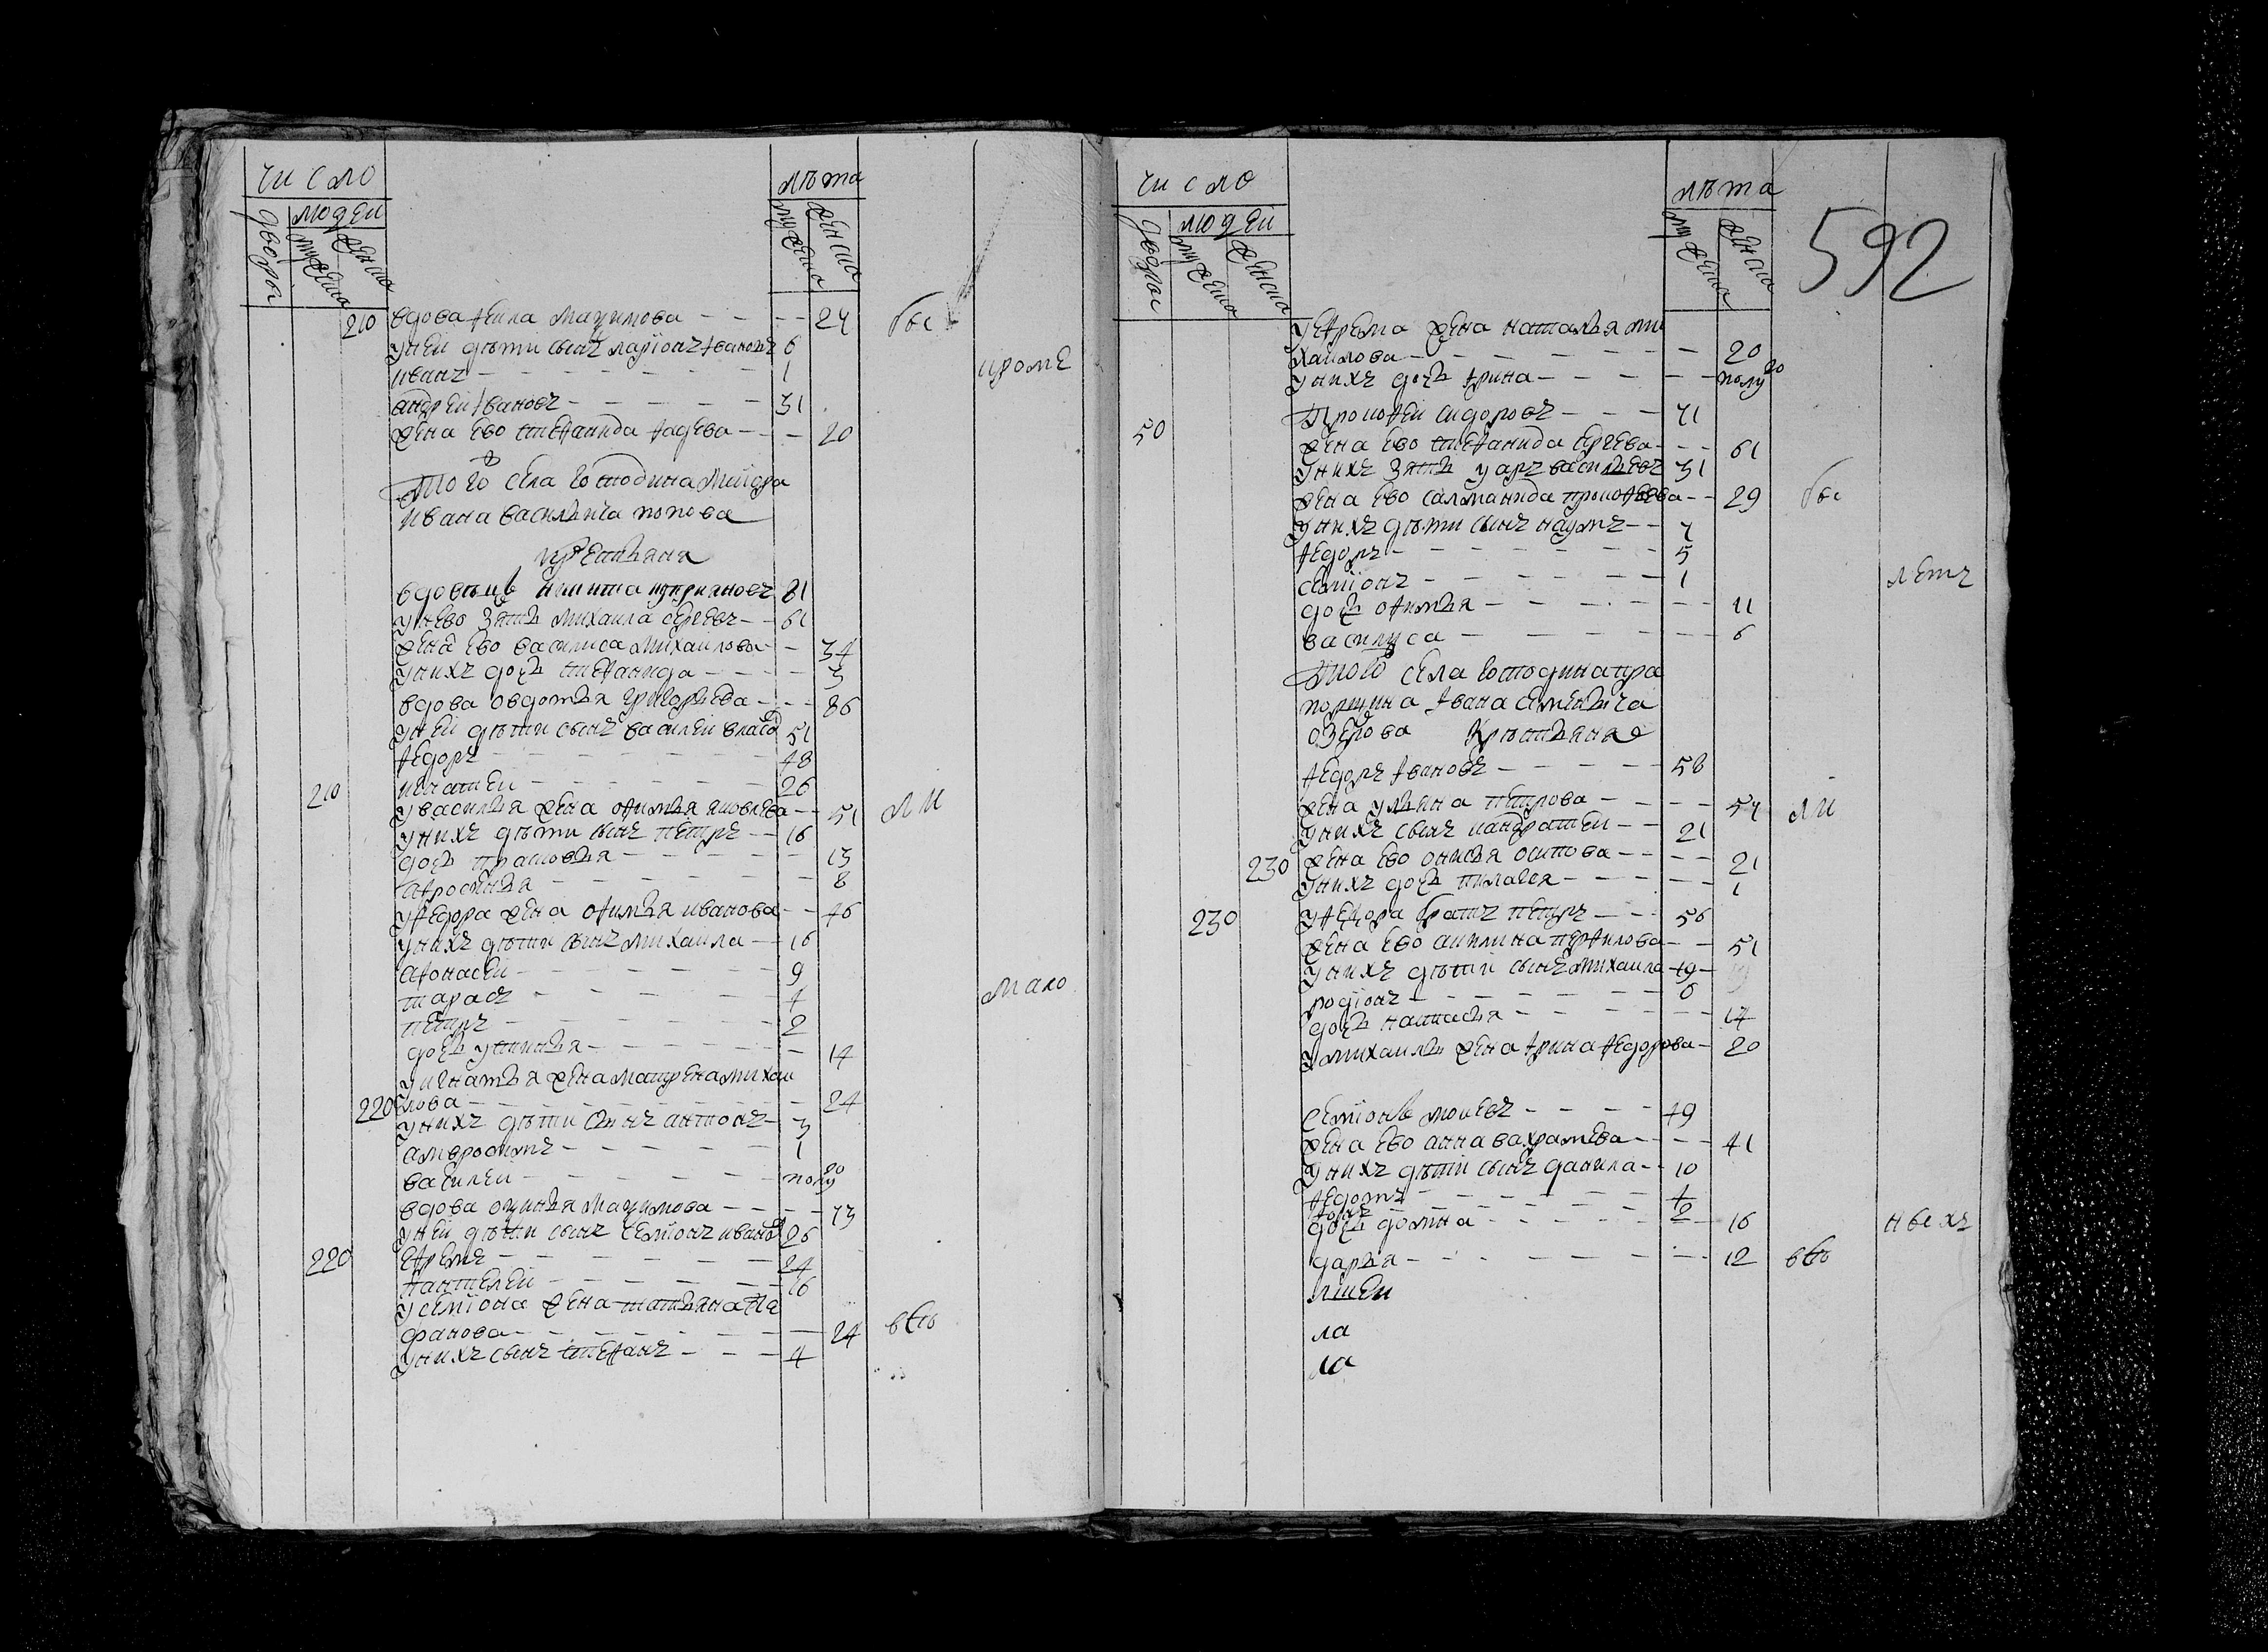 число
людей
дворы
мужеска
женска
лѣта
мужеска
женска
210 вдова Фекла Маѯимова - - - - 24 бы
у неи дѣти сынъ Ларіонъ Ивановъ 6
иванъ - - - - - - 1 кромѣ
андреи Ивановъ - - - - - 31
жена ево стефанида Фадѣева - - - 20
Того села господина Маиора
Ивана Васильича попова
крестьяня
вдовецъ никита куприяновъ 81
у нево зять михаила сергѣевъ - - 61
жена ево василиса михаилова - - 34
у нихъ дочь стефанида - - - - 3
вдова овдотья григорьева - - - 86
у неи дѣти сынъ василеи власо 51
Федоръ - - - - - 48
210 игнатеи - - - - - 26
у василья жена офимья яковлева - - 51 ли
у нихъ дѣти сынъ петръ - - 16
дочь прасковья - - - - - 13
афросинья - - - - - - 8
у Федора жена офимья иванова - - 46
у нихъ дѣти сынъ михаила - - 16
афонасеи - - - - - 9
тарасъ - - - - - 4 мало
петръ - - - - - 2
дочь устинья - - - - - 14
у игнатья жена матрена михаи
220 лова - - - - - - - 24
у нихъ дѣти сынъ антонъ - 3
амвросимъ - - - - - 1
василеи - - - - - полу го
вдова оѯинья маѯимова - - - - 73
у неи дѣти сынъ семионъ ивано 26
220 ефремъ - - - - - 24
пантелеи - - - - - 16
у семиона жена татьяна
фанова - - - - - - 24 всѣ
у нихъ сынъ стефанъ - - - 4
число
людеи
дворы
мужеска
женска
лѣта
мужеска
женска
592
у ефрема жена наталья ми
хаилова - - - - - - 20
у нихъ дочь Ирина - - - - - полу го
50 Прокофеи сидоровъ - - - 71
жена ево стефанида сергѣева - - - 61
у нихъ зять васильевъ 31
жена ево саломанида прокофьева - - 29 бы
у нихъ дѣти сынъ наумъ - - 7
Федоръ - - - - - - 5
семионъ - - - - - - 1 летъ
дочь офимья - - - - - - 11
василиса - - - - - - 6
того села господина пра
порщика Ивана
озерова Крестьяня
Федоръ Ивановъ - - - - - 58
жена ульяна петрова - - - - - 54 ли
у нихъ сынъ кандратеи - - 21
230 жена ево онисья осипова - - - - 21
у нихъ дочь пелагея - - - - - 1
230 у Федора братъ петръ - - - 56
жена ево акилина перфилова - - 51
у нихъ дѣти сынъ михаила - 19 -
родіонъ - - - - - - 6
дочь настасья - - - - - 14
у михаилы жена Ирина Федорова - 20
семионъ мокѣевъ - - - - 49
жена ево анна вахрамѣева - - - - 41
у нихъ дѣти сынъ данила - - 10
Федотъ - - - - - - 4
2
дочь домна - - - - - - 16 н вехъ
дарья - - - - - - - 12 всѣ
ла